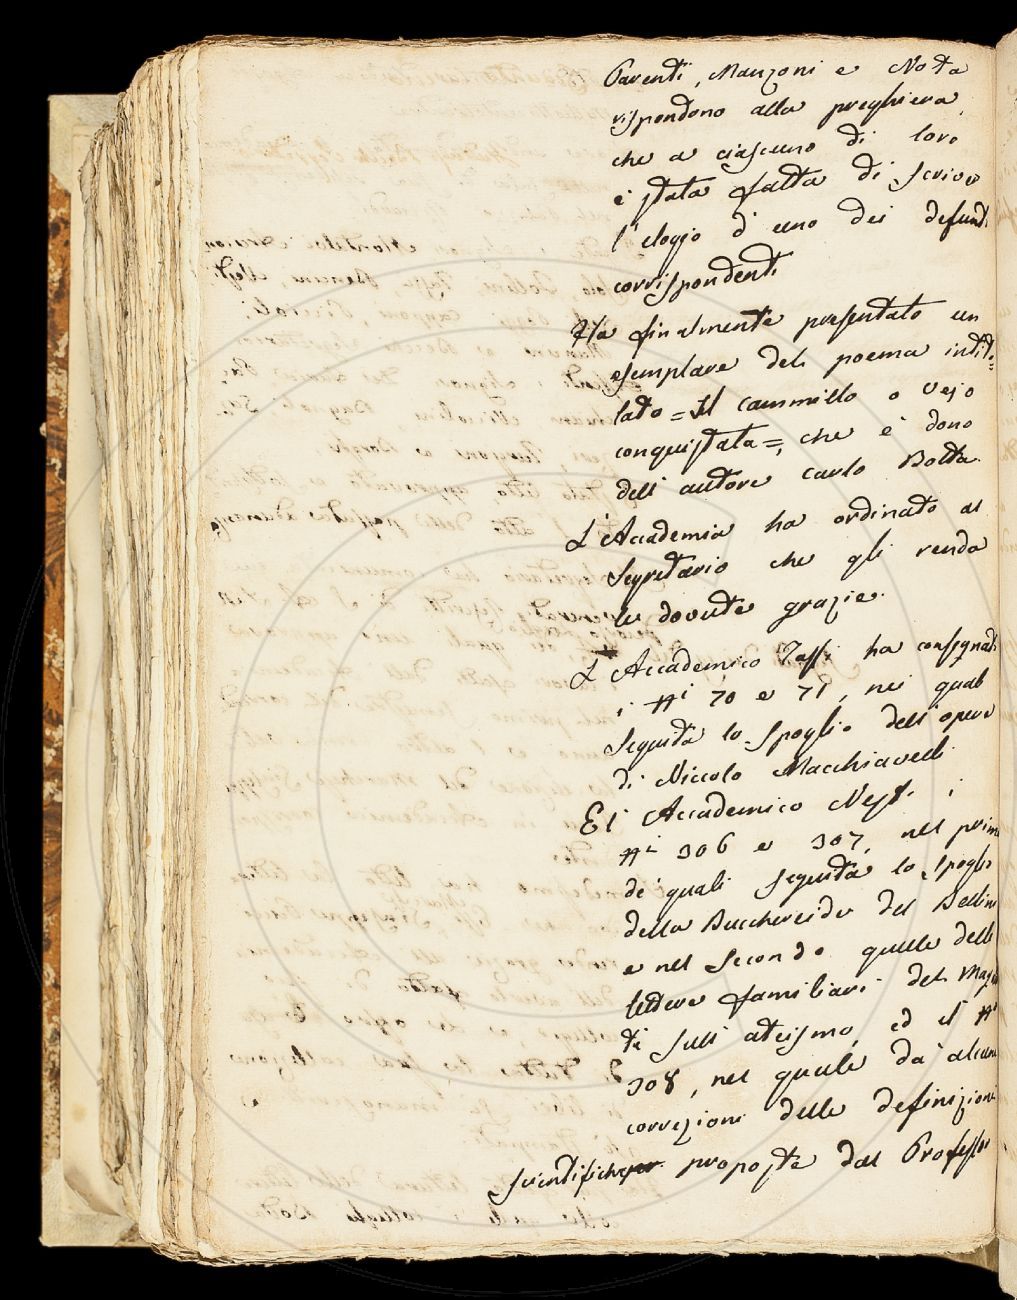 Parenti, Manzoni e Nota
rispondono alla preghiera
che a ciascuno di loro
è stata fatta di scrivere
l'elogio d'uno dei defunti
corrispondenti
Ha finalmente presentato un
esemplare del poema intito=
lato = Il Cammillo o Vejo
conquistata =, che è dono
dell'autore Carlo Botta.
L'Accademia ha ordinato al
Segretario che gli renda
le dovute grazie.
L'Accademico ha consegnati
i Ni 70 e 71, nei quali
seguita lo spoglio dell'opere
di Niccolo Macchiavelli
E l'Accademico i
Ni 306 e 307, nel primo
de' quali seguita lo spoglio
della Bucchereide del Bellini
e nel secondo quello delle
lettere familiari del Magalot
ti sull'ateismo, ed il No
308, nel quale dà alcune
correzioni delle definizioni
scientifiche proposte dal Professor